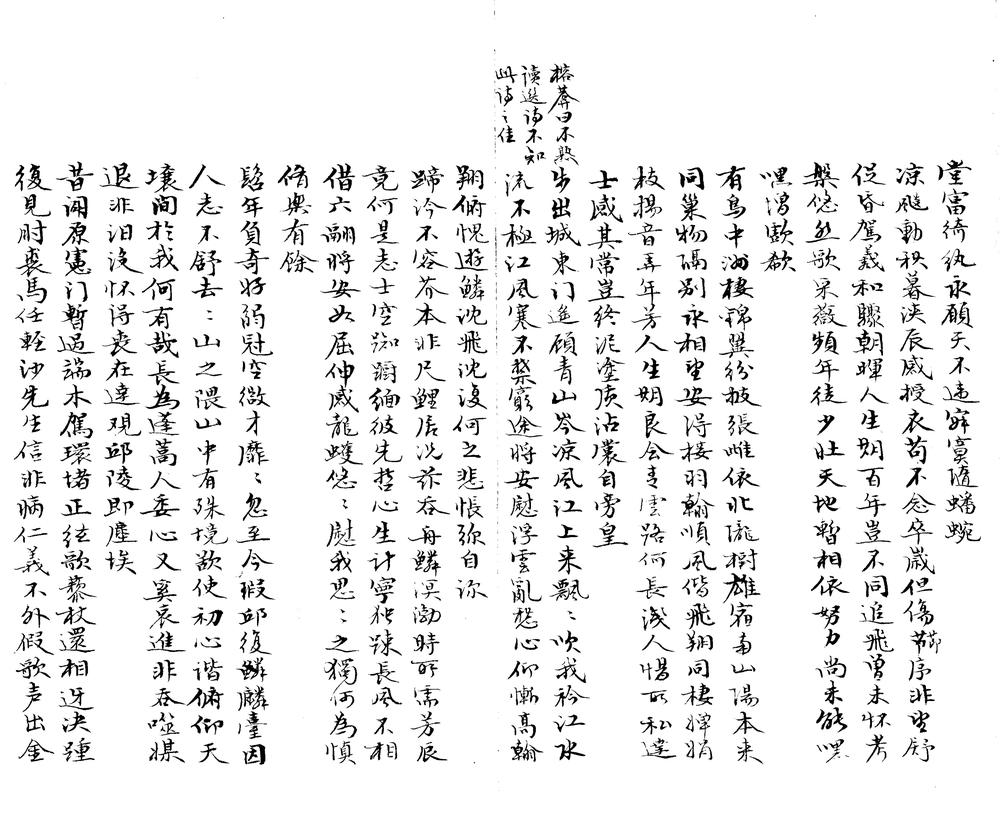 堂富綺紈永願天不違寂寞隨蟠蜿
凉飈動秋暮浹辰感授衣苟不念卒歲但傷節序非望舒
促宵駕羲和驟朝暉人生期百年豈不同追飛曾未怀考
槃悠然歌采薇頻年徒少壯天地暫相依努力尚未能嘿
嘿增歔欷
有鳥中洲棲錦翼紛披張雌依北隴樹雄宿南山陽本来
同巢物隔別永相望安得接羽翰順風偕飛翔同棲嬋娟
枝揚音弄年芳人生期良会青雲路何長淺人惕所私達
士感其常豈終泥塗质沾裳自旁皇
榕莽曰不熟
讀選诗不知
此诗之佳
步出城東门進顧青山岑凉風江上来飄飄吹我衿江水
流不極江風寒不禁窮途將安慰浮雲亂愁心仰慚高翰
翔俯愧遊鱗沈飛沈復何之悲悵弥自沵
蹄涔不容芥本非尺鯉居况茲吞舟鱗溟渤時所需芳辰
竟何是志士空踟躕緬彼先哲心生計寧独踈長風不相
借六翮將安如屈伸感龍蠖悠〻慰我思〻之獨何為慎
脩與有餘
髫年負奇好弱冠空微才靡〻忽至今瑕邱復麟臺因
人志不舒去〻山之隈山中有殊境欲使初心谐俯仰天
壤间於我何有哉長為蓬蒿人委心又奚哀進非吞噬媒
退非汨沒怀得丧在達观邱陵即塵埃
昔闻原憲门暫過端木駕環堵正弦歌藜杖還相迓决踵
復見肘裘馬任輕沙先生信非病仁義不外假歌声出金